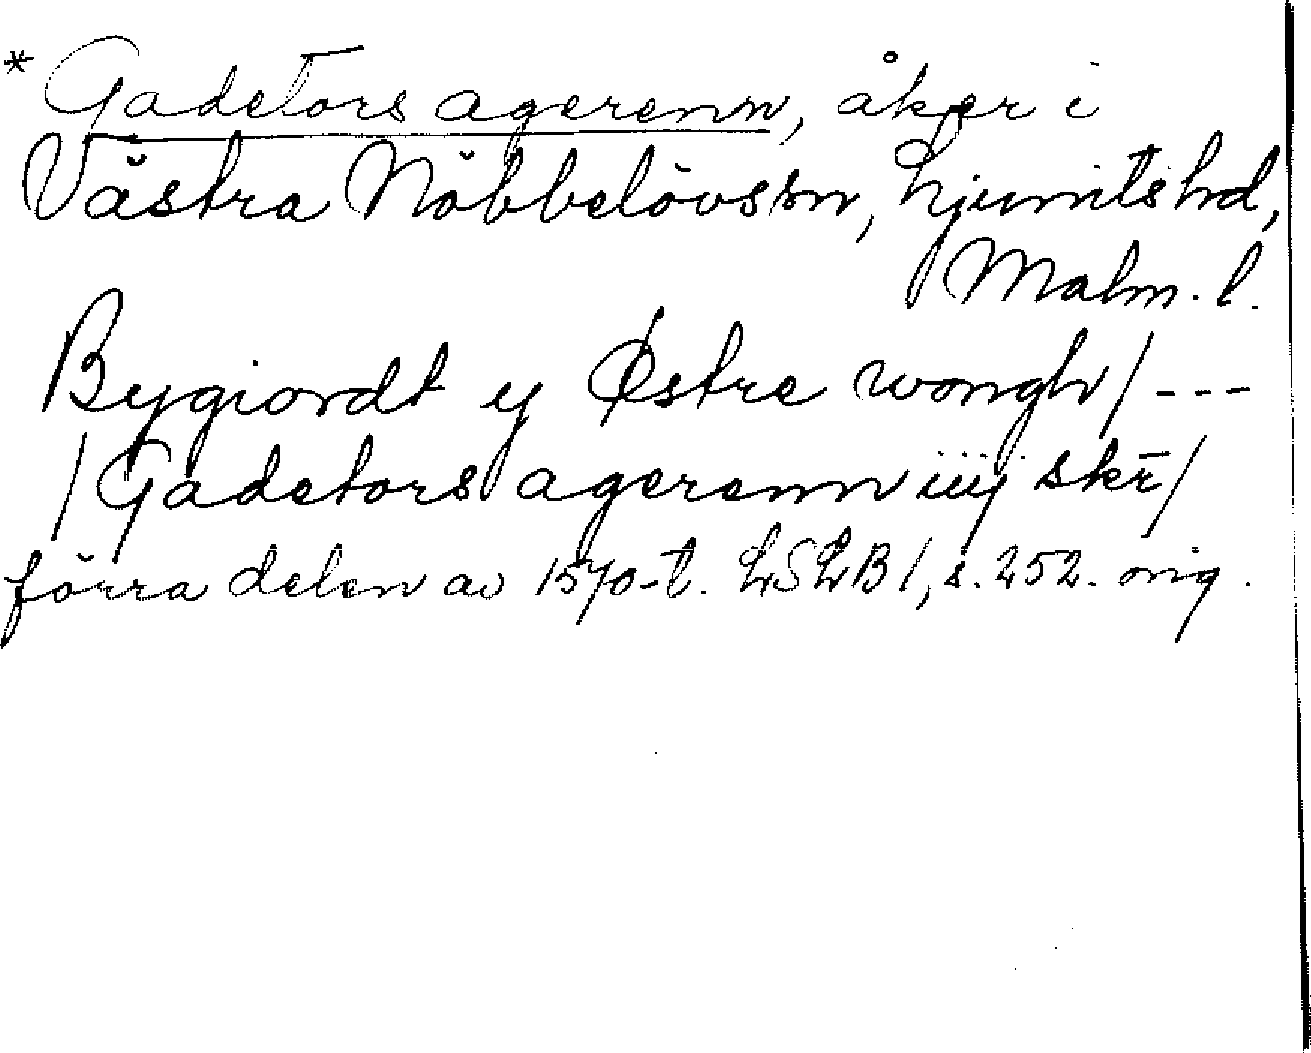 * Gadetors agerenn, åker i
Västra Nöbbelövs sn, Ljunits hd,
Malm. l.
Bygiordt y Østre wongh / ---
/ Gadetors agerenn iiij skr̄ /
förra delen av 1570-t. LSLB 1, s. 252. orig.